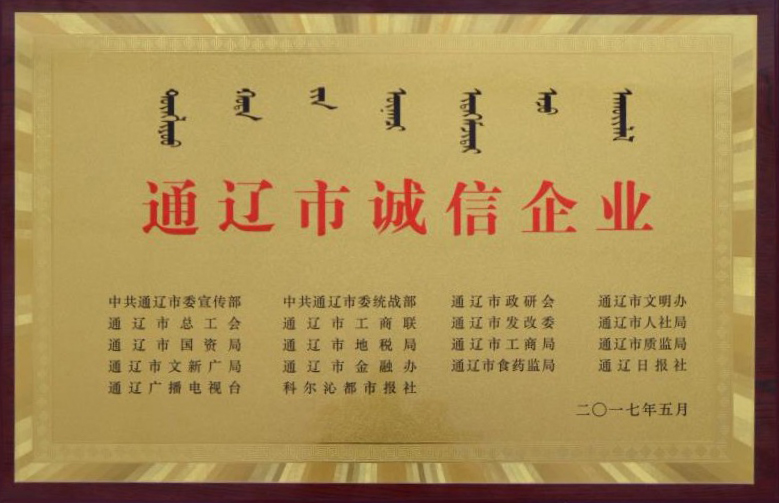 通辽市诚信企业
中共通辽市委宣传部 中共通辽市委统战部 通辽市政研会 通辽市文明办
通辽市总工会 通辽市工商联 通辽市发改委 通辽市人社局
通辽市国资局 通辽市地税局 通辽市工商局 通辽市质监局
通辽市文新广局 通辽市金融办 通辽市食药监局 通辽日报社
通辽广播电视台 科尔沁都市报社
二〇一七年五月